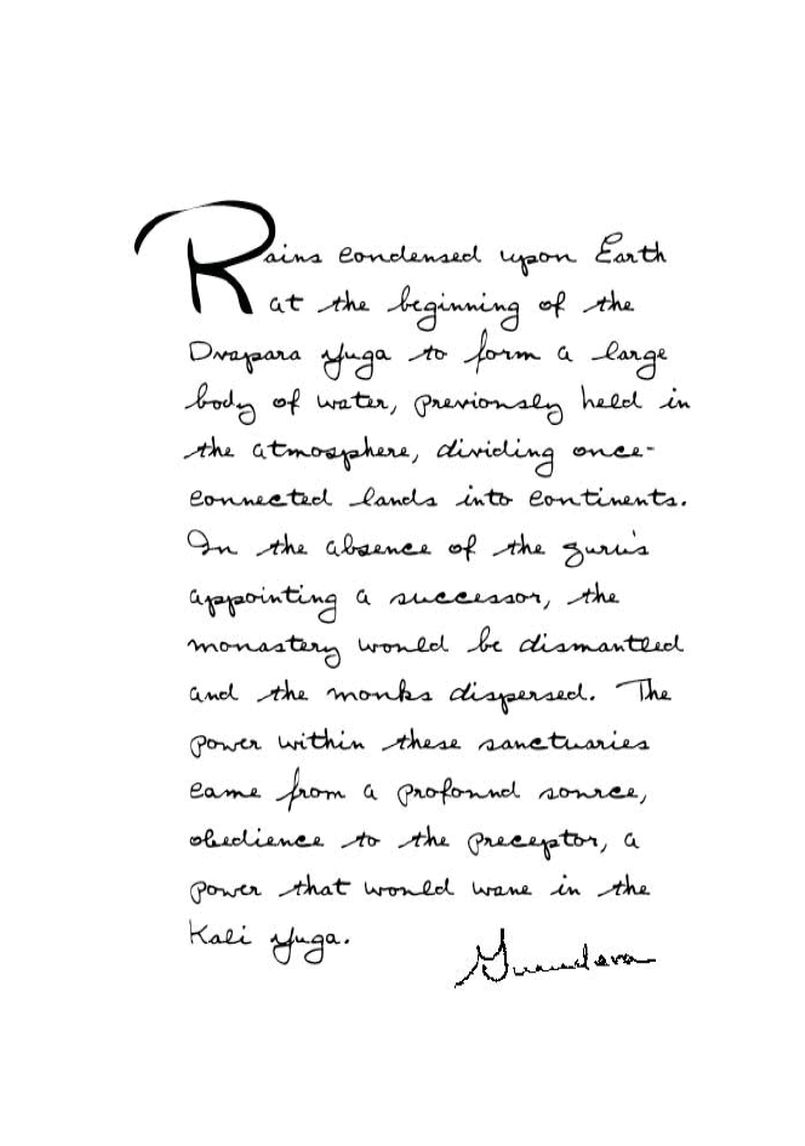 Rains condensed upon Earth
at the beginning of the
Dvapara yuga to form a large
body of water, previously held in
the atmosphere, dividing once-
connected lands into continents.
In the absence of the guru's
appointing a successor, the
monastery would be dismantled
and the monks dispersed. The
power within these sanctuaries
came from a profound source,
obedience to the preceptor, a
power that would wane in the
Kali yuga.
Gurudeva